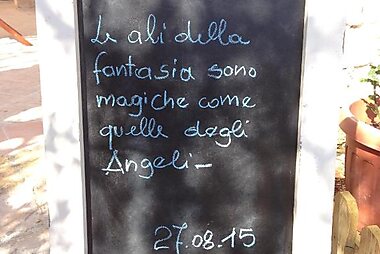 Le ali della
fantasia sono
magiche come
quelle degli
Angeli-
27.08.15